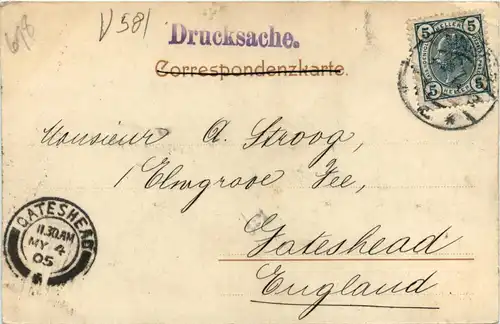 698
V 581
Drucksache.
Correspondenzkarte.
5 HELLER 5
5 HELLER 5
Monsieur A. Stroog,
1 Elmgrove Fee,
Gateshead
England
GATESHEAD
11.30AM
MY 4
05